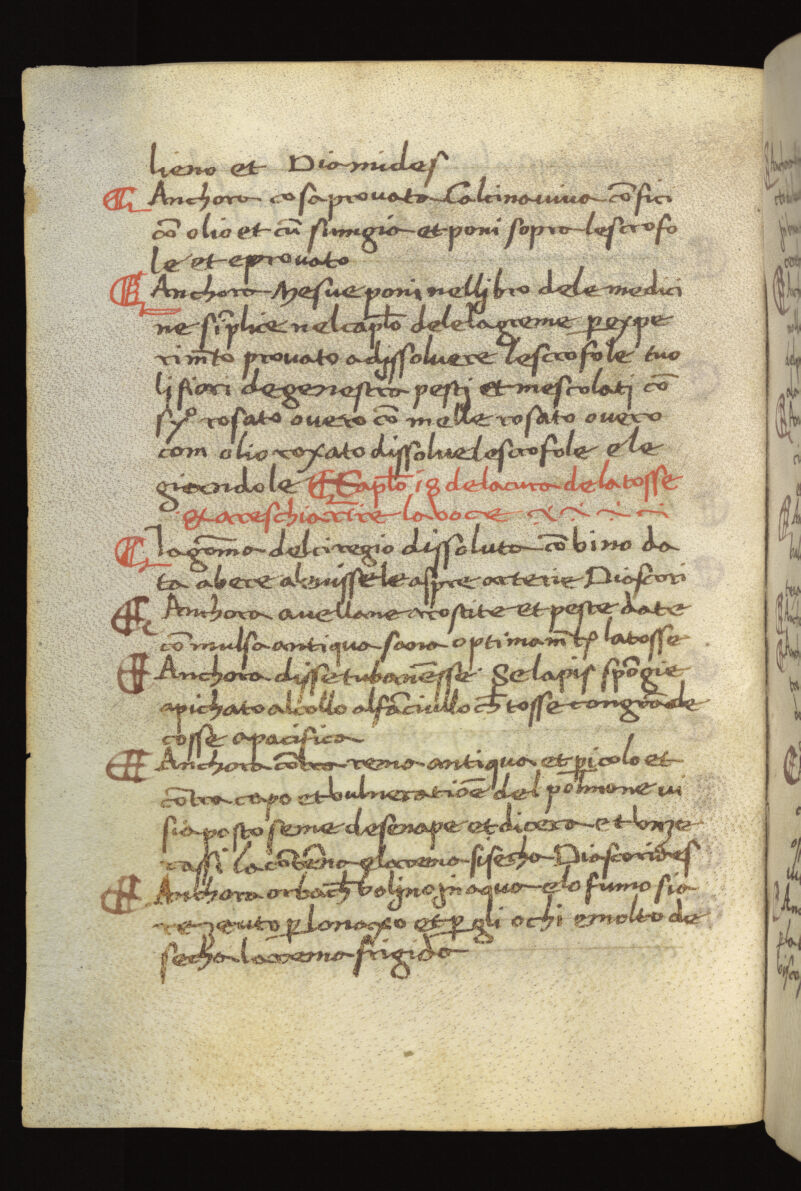 lieno et Diamides
Anchora cosa provata Calcina viva cōfici
cō olio et cū sungia et poni sopra le scrofo
le et e provato
Anchora Mesue poni nel lybro dele medici
ne sīplice nel caplō dele lagreme per expe
rimēto provato a dyssolvere le scrofole tuo
li fiori de genestra pesty et mescolatj cō
syº rosato overo cō melle rosato overo
com olio roxato dissolve le scrofole e le
giaendole Caplō 18 dela cura dela tosse
et a reschiarire la voce
la gōma del ciregio dissoluta cō bino da
ta a bere a le aspre arterie Dioscori
Anchora avellane arostite et peste date
cō mulsa antiqua sana optimamēte la tosse
Anchora disse tubanēsse ge lapis spōgie
apichato al collo al fanciullo ch̄ tosse con grāde
tosse apacifica
Anchora contra rema antiqua et pericolo et
cōtra capo et vulneratiōe del polmone vi
sia posto seme de senape et dicera et vnze
rassi la e la rema si secha Dioscorides
Anchora orbach bolyno in aqua e lo fumo sia
rezeuto per lo naxo et per gli ochi e molto de
secha la rema frigida